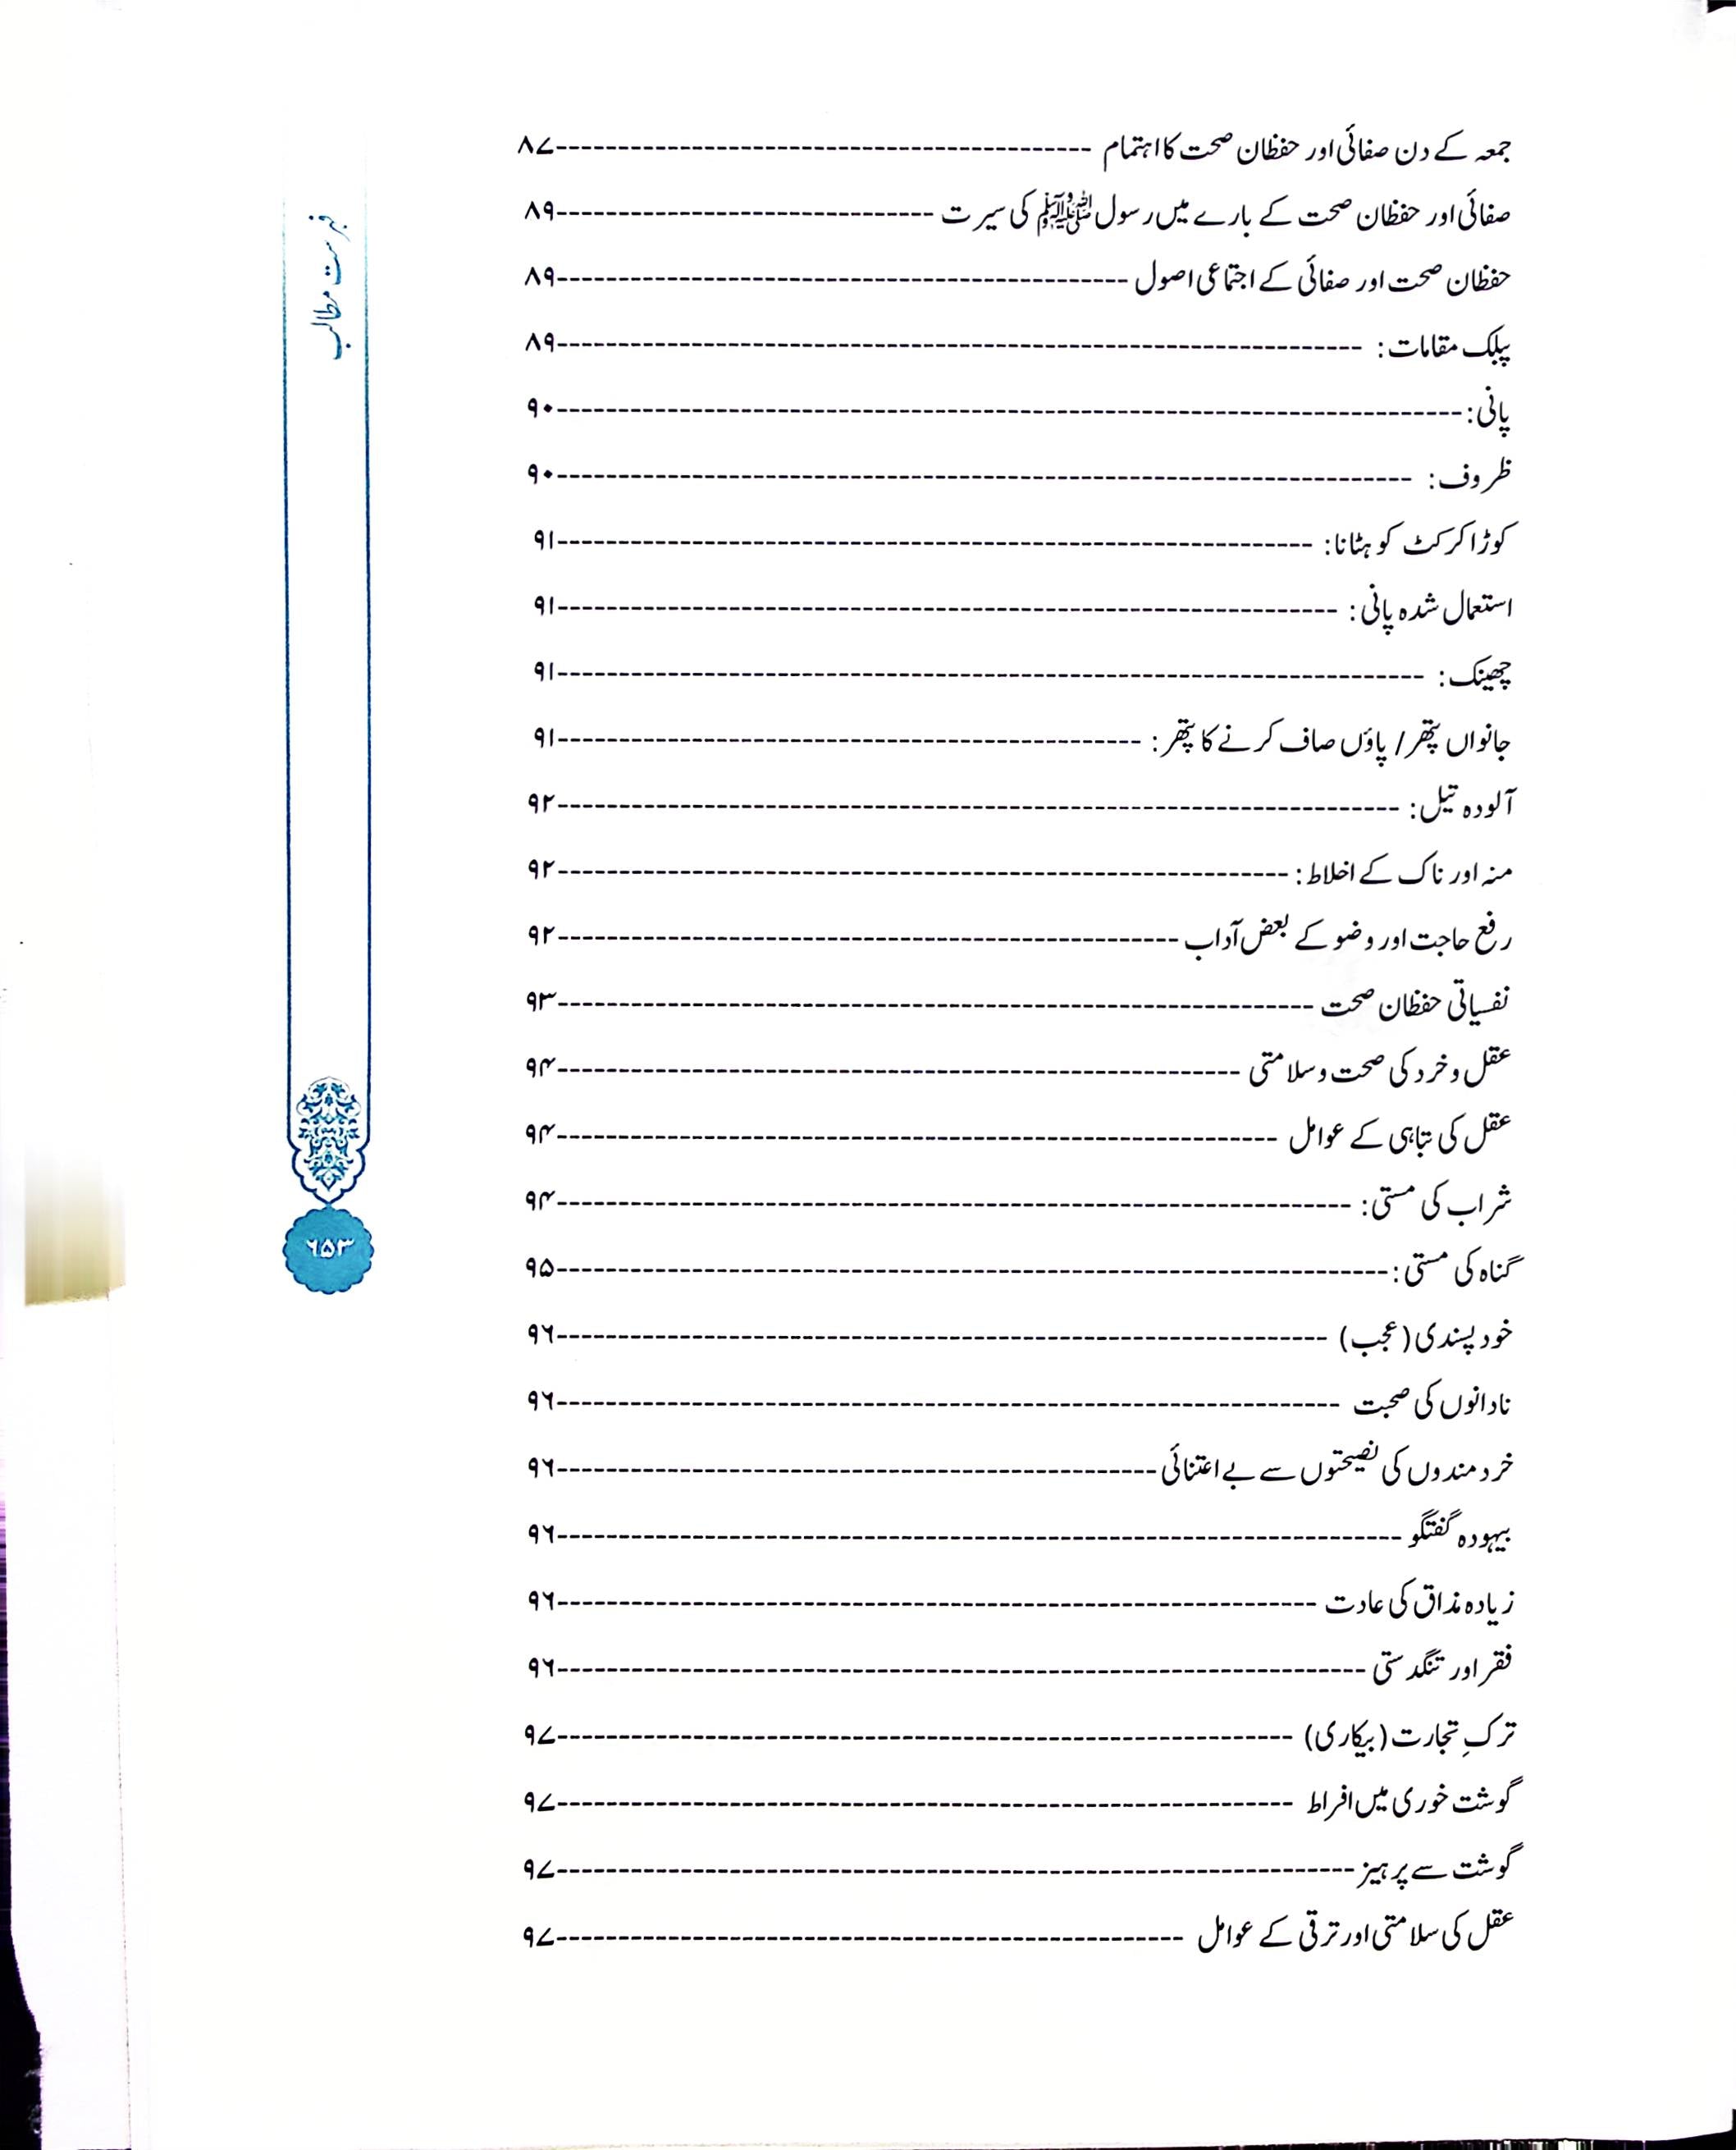 جمعہ کے دن صفائی اور حفظان صحت کا اہتمام ------------------------------------------- ۸۷
صفائی اور حفظان صحت کے بارے میں رسول ﷺ کی سیرت ------------------------------ ۸۹
حفظان صحت اور صفائی کے اجتماعی اصول ---------------------------------------------- ۸۹
پبلک مقامات: ---------------------------------------------------------------- ۸۹
پانی: ------------------------------------------------------------------------ ۹۰
ظروف: -------------------------------------------------------------------- ۹۰
کوڑا کرکٹ کو ہٹانا: ------------------------------------------------------------ ۹۱
استعمال شدہ پانی: -------------------------------------------------------------- ۹۱
چھینک: --------------------------------------------------------------------- ۹۱
جانواں پتھر / پاؤں صاف کرنے کا پتھر: ----------------------------------------------- ۹۱
آلودہ تیل: ------------------------------------------------------------------- ۹۲
منہ اور ناک کے اخلاط: ---------------------------------------------------------- ۹۲
رفع حاجت اور وضو کے بعض آداب -------------------------------------------------- ۹۲
نفسیاتی حفظان صحت ------------------------------------------------------------ ۹۳
عقل و خرد کی صحت و سلامتی ------------------------------------------------------- ۹۴
عقل کی تباہی کے عوامل ---------------------------------------------------------- ۹۴
شراب کی مستی: --------------------------------------------------------------- ۹۴
گناہ کی مستی: ------------------------------------------------------------------ ۹۵
خود پسندی (عجب) ------------------------------------------------------------- ۹۶
نادانوں کی صحبت -------------------------------------------------------------- ۹۶
خردمندوں کی نصیحتوں سے بے اعتنائی ------------------------------------------------ ۹۶
بیہودہ گفتگو ------------------------------------------------------------------- ۹۶
زیادہ مذاق کی عادت ------------------------------------------------------------ ۹۶
فقر اور تنگدستی ---------------------------------------------------------------- ۹۶
ترکِ تجارت (بیکاری) ----------------------------------------------------------- ۹۷
گوشت خوری میں افراط ----------------------------------------------------------- ۹۷
گوشت سے پرہیز ---------------------------------------------------------------- ۹۷
عقل کی سلامتی اور ترقی کے عوامل -------------------------------------------------- ۹۷
فہرست مطالب
۶۵۳